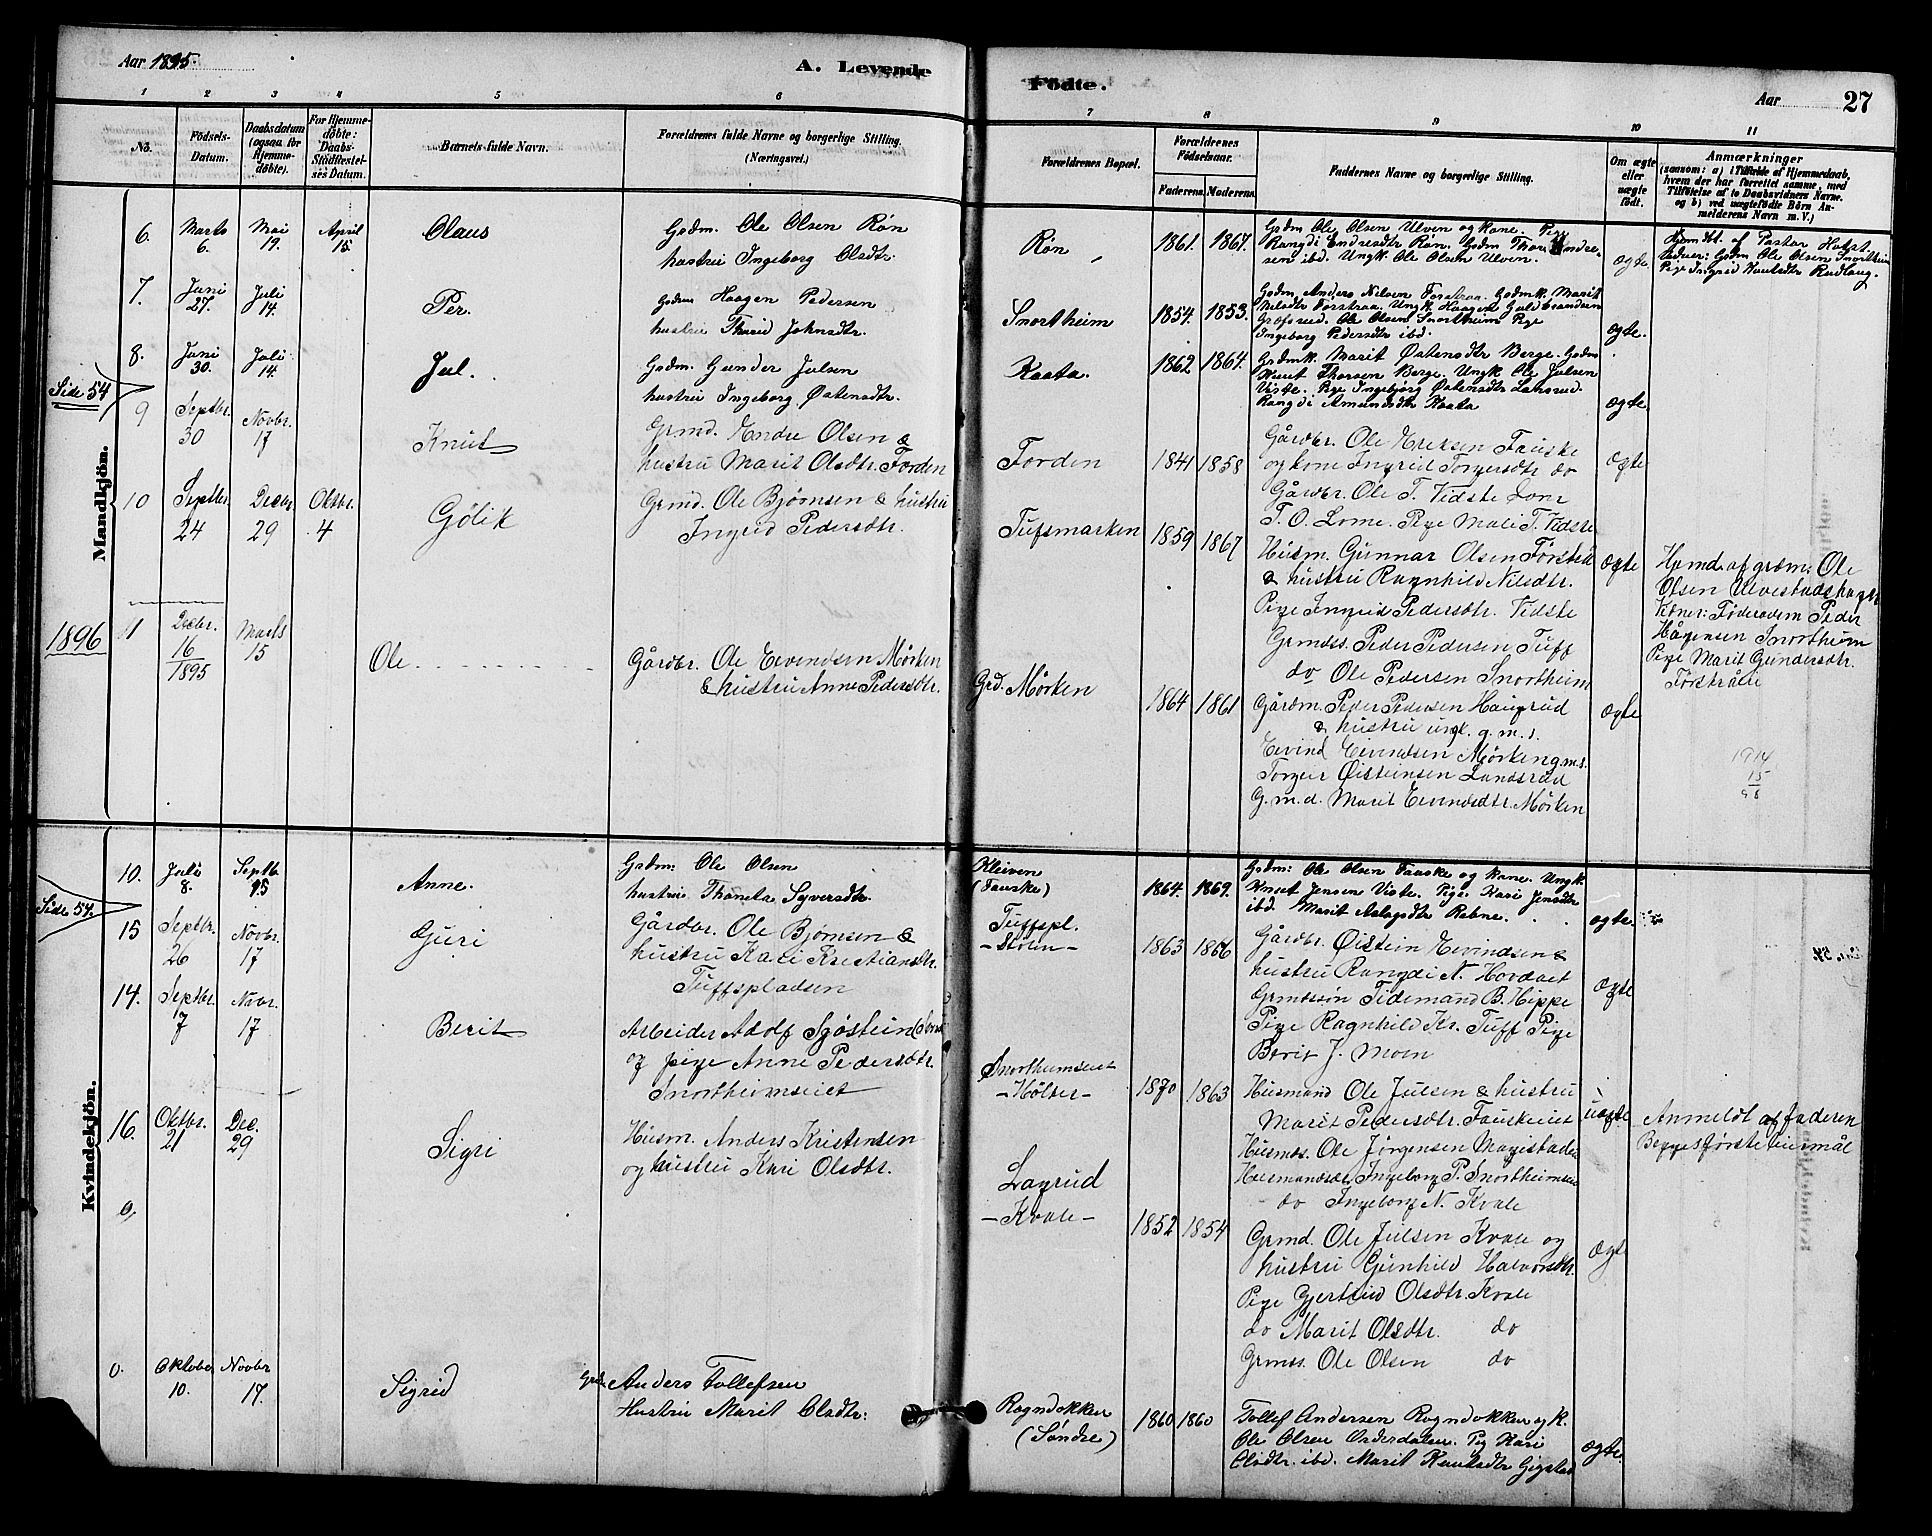 Aar 1895.
A. Levende
Födte.
Aar
27
1
2
3
4
5
6
7
8
9
10
11
No.
Födsels-
Datum.
Daabsdatum
(ogsaa for
Hjemme-
döbte).
For Hjemme-
döbte:
Daabs-
Stadfæstel-
ses Datum.
Barnets fulde Navn.
Forældrenes fulde Navne og borgerlige Stilling.
(Næringsvei.)
Forældrenes Bopæl.
Forældrenes
Födselsaar.
Faderens.
Moderens.
Faddernes Navne og borgerlige Stilling.
Om ægte
eller
uægte
födt.
Anmærkninger
(saasom: a) i Tilfælde af Hjemmedaab,
hvem der har forrettet samme, med
Tilföielse af to Daabsvidners Navne.
og b) ved uægtefödte Börn An-
melderens Navn m. V.)
Mandkjön.
6.
Marts
6.
Mai
19.
April
15.
Olaus
Grdm. Ole Olsen Røn
hustru Ingeborg Olsdtr.
Røn
1861.
1867.
Grdm Ole Olsen Ulven og Kone. Pige
Rangdi Endresdtr Røn. Grdm Thor Endre-
sen ibd. Ungk. Ole Olsen Ulven.
ægte.
Hjem dbt. af Pastor
vidner: Grdm Ole Olsen Snortheim
Pige Ingrid Knutsdtr Rudlaug.
7.
Juni
27.
Juli
14.
Per.
Grdm Haagen Pedersen
hustru Thurid Johnsdtr.
Snortheim
1854.
1853.
Grdm Anders Nilsen Forstraa. Grdmk. Marit
Nilsdtr Forstraa. Ungk Haagen Guldbrandsen
Græfsrud. Ole Olsen Snortheim Pige
Ingeborg Pedersdtr ibd
ægte.
8.
Juni
30.
Juli
14.
Jul.
Grdm. Gunder Julsen
hustru Ingeborg Østensdtr.
Kaata.
1862
1864.
Grdmk. Marit Østensdtr Berge. Grdm
Knut Thorsen Berge. Ungk Ole Julsen
Viste. Pige Ingebjørg Østensdtr
Rangdi Amundsdtr Kaata
ægte.
Side 54
9
Septbr.
30
Novbr.
17
Knut
Grmd. Endre Olsen &
hustru Marit Olsdtr. Forden
Forden
1841
1858
Gårdbr. Ole Eriksen Fauske
og kone Ingrid Torgersdtr do
Gårdbr. Ole T. Vidste Lome
T. O. Lome. Pige Mali T. Vidste
ægte
10
Septbr.
24
Decbr
29
Oktbr.
4
Gölik
Grmd. Ole Bjørnsen & hustru
Ingrid Pedersdtr.
Tufsmarken
1859
1867
Husm. Gunnar Olsen Førstrå
& hustru Ragnhild Nilsdtr.
Pige Ingrid Pedersdtr. Vidste
Grmdss. Peder Pedersen Tuff
do Ole Pedersen Snortheim
ægte
Hjmd. af grdm: Ole
Olsen Ulvestadshagen
Vdner: Føderaadsm Peder
Hågensen Snortheim
Pige Marit Gundersdtr.
Førstråeie
1896
11
Decbr.
16
1895
Marts
15
Ole
Gårdbr. Ole Eivendsen Mørken
& hustru Anne Pedersdtr.
Grd. Mørken
1864
1861
Gårdm. Peder Pedersen Haugrud
& hustru ungk. g.m.s.
Eivind Eivendsen Mørken g.m.s.
Torger Øisteinsen Landsrud
G.m.d. Marit Eivendsdtr. Mørken
ægte
1914
15
98
Kvindekjön.
10.
Juli
8.
Septb.
15
Anne.
Grdm: Ole Olsen
hustru Thoneta Syversdtr.
Kleiven
(Fauske)
1864.
1869.
Grdm: Ole Olsen Fauske og Kone. Ungk.
Knut Jensen Viste. Pige Kari Jensdtr
ibd. Marit Aslagsdtr Rebne.
ægte.
Side 54.
15
Septbr.
26
Novbr.
17
Guri
Gårdbr. Ole Bjørnsen &
hustru Kari Kristiansdtr.
Tuffspladsen
Tuffspl.
- Stølen -
1863
1866
Gårdbr. Øistein Eivindsen &
hustru Rangdi N. Hovdaet
Grmdssøn Tidemand B. Hippe
Pige Ragnhild Kr. Tuff Pige
Berit J. Moen
ægte
14.
Septbr.
7
Novbr.
17
Berit
Arbeider Adolf Sjøstein
og pige Anne Pedersdtr.
Snortheimseiet
Snortheimseiet
- Hølter -
1870
1863
Husmand Ole Julsen & hustru
Marit Pedersdtr. Fauskeeiet
Husmds. Ole Jørgensen Magistadei
Husmandsdr. Ingeborg P. Snortheimsei
do Ingeborg N. Kvale
uægte
Anmeldt af faderen
Begges første leiermål
16.
Oktbr.
21
Dec.
29
Sigri
Husm. Anders Kristensen
og hustru Kari Olsdtr.
Lagrud
- Kvale -
1852
1854
Grmd. Ole Julsen Kvale og
hustru Gunhild Halvorsdtr.
Pige Gjertrud Olsdtr. Kvale
do Marit Olsdtr. do
Grmss. Ole Olsen do
ægte
0.
0.
Oktober
10.
Novbr
17.
Sigrid
Grdm Anders Tollefsen
Hustru Marit Olsdtr:
Rogndokken
(Søndre)
1860
1860
Tollef Andersen Rogndokken og K.
Ole Olsen Onderdalen. Pig Kari
Olsdtr. ibd. Marit Knutsdtr Gigstad
ægte.